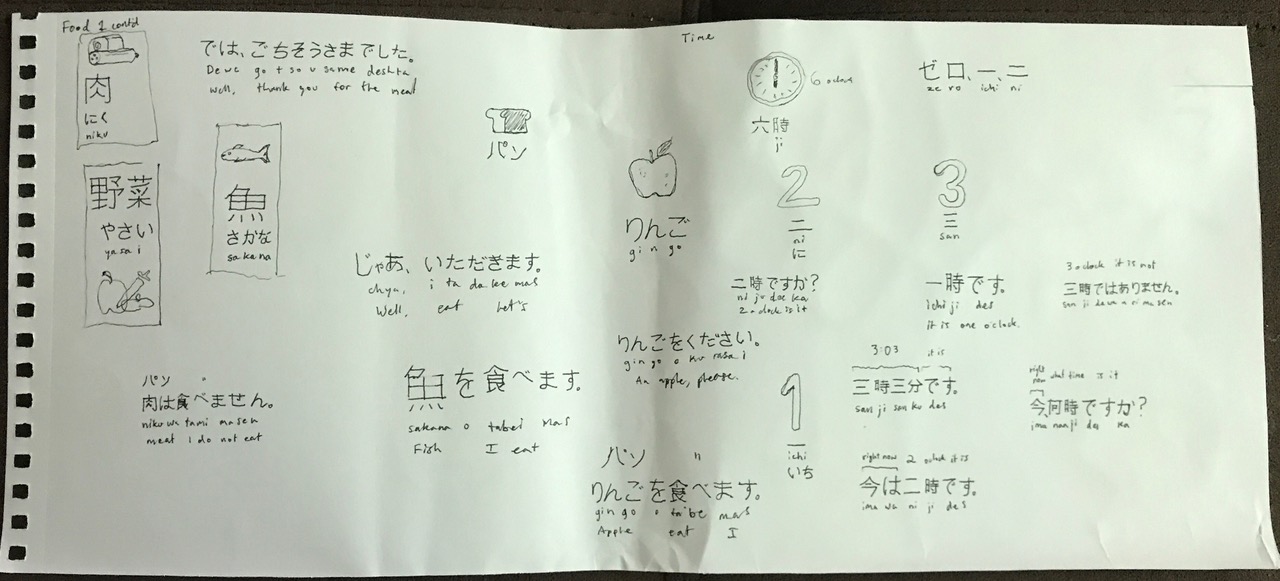 Food 1 contd
肉
にく
niku
では、ごちそうさまでした。
De wa go t so u sama deshta
Well, thank you for the meal
野菜
やさい
yasai
魚
さかな
sakana
パソ
じゃあ、いただきます。
chya, i ta da kee mas
Well, eat Let's
パソ "
肉は食べません。
niku wa tami masen
meat I do not eat
魚を食べます。
sakana o tabei mas
Fish I eat
りんご
gingo
りんごをください。
gin go o ku rasai
An apple, please.
パソ "
りんごを食べます。
gin go o tabe mas
Apple eat I
Time
6 oclock
六時
ji
ゼロ、一、二
ze ro ichi ni
2
二
ni
に
3
三
san
二時ですか?
ni ji des ka
2 oclock is it
一時です。
ichi ji des
it is one o'clock.
3 oclock it is not
三時ではありません。
san ji dewa ari masen
1
一
ichi
いち
3:03 it is
三時三分です。
san ji san ku des
right now what time is it
今、何時ですか?
ima nanji des ka
right now 2 oclock it is
今は二時です。
ima wa ni ji des